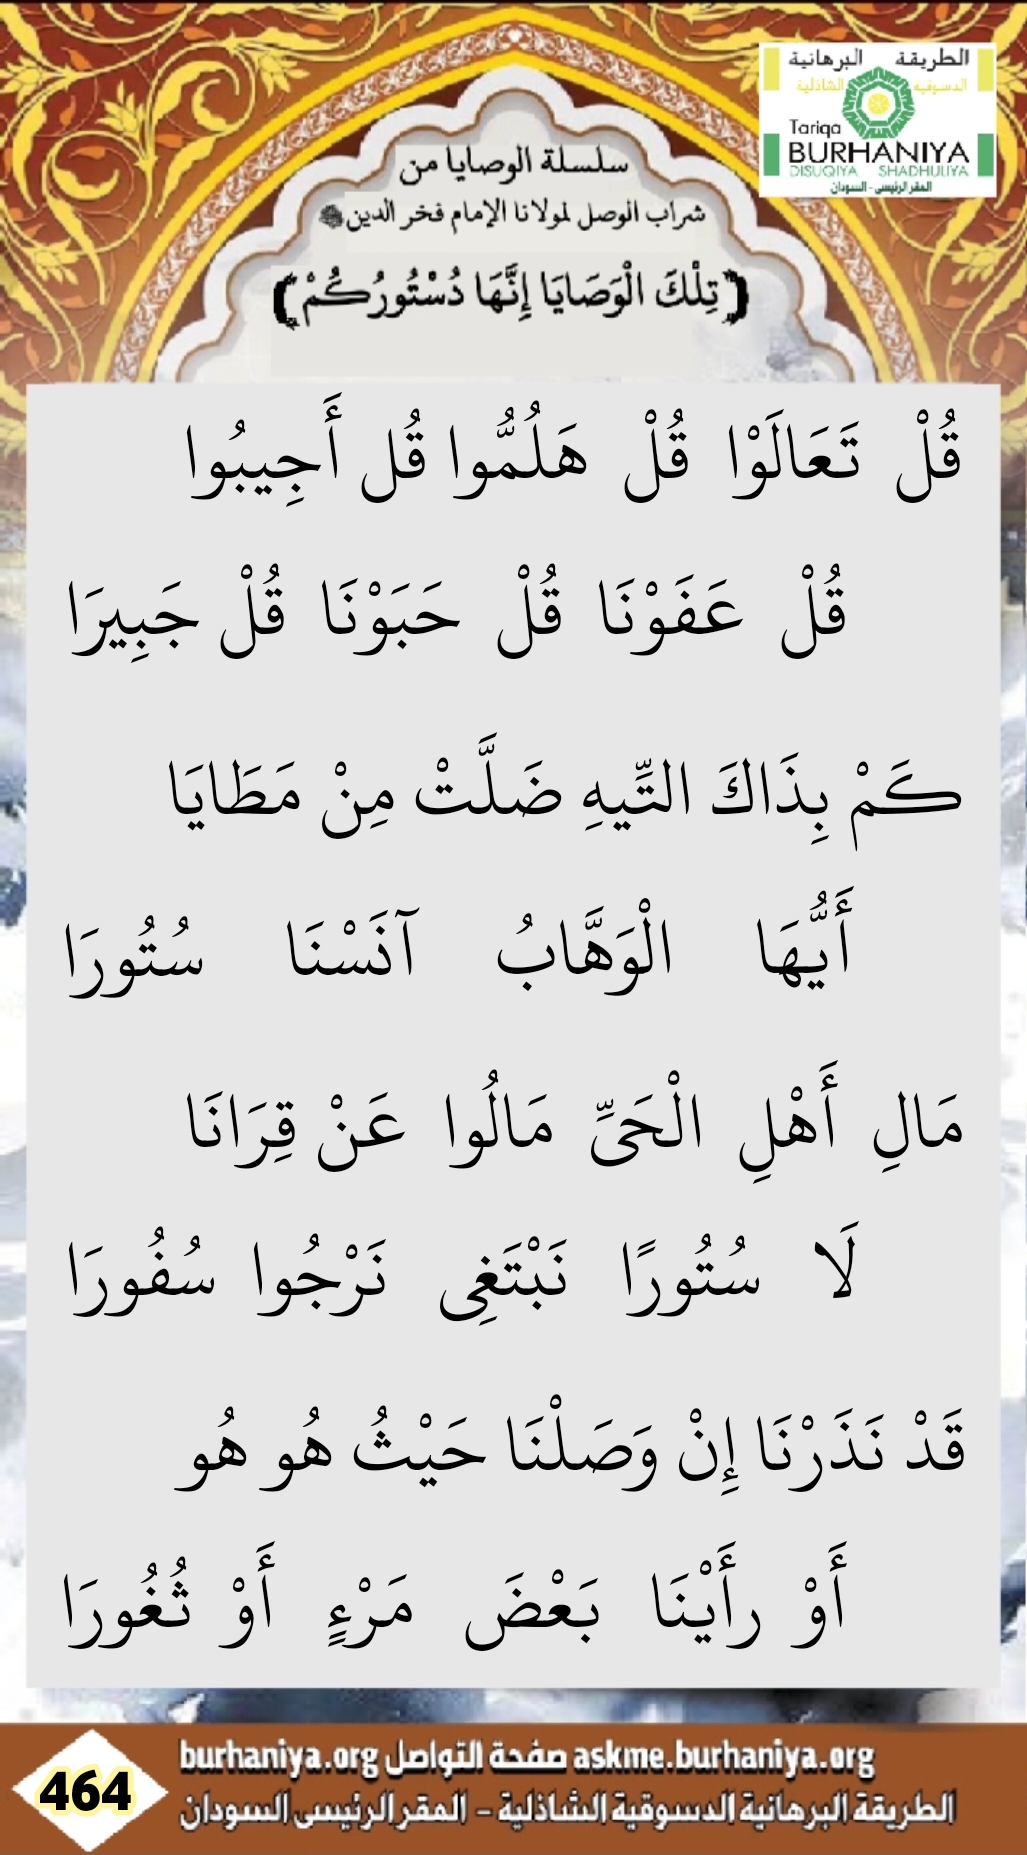 الطريقة البرهانية
الدسوقية الشاذلية
Tariqa
BURHANIYA
DISUQIYA SHADHULIYA
المقر الرئيسى - السودان
سلسلة الوصايا من
شراب الوصل لمولانا الإمام فخر الدين
﴿تِلْكَ الْوَصَايَا إِنَّهَا دُسْتُورُكُمْ﴾
قُلْ تَعَالَوْا قُلْ هَلُمُّوا قُل أَجِيبُوا
قُلْ عَفَوْنَا قُلْ حَبَوْنَا قُلْ جَبِيرَا
كَمْ بِذَاكَ التِّيهِ ضَلَّتْ مِنْ مَطَايَا
أَيُّهَا الْوَهَّابُ آنَسْنَا سُتُورَا
مَالِ أَهْلِ الْحَىِّ مَالُوا عَنْ قِرَانَا
لَا سُتُورًا نَبْتَغِى نَرْجُوا سُفُورَا
قَدْ نَذَرْنَا إِنْ وَصَلْنَا حَيْثُ هُو هُو
أَوْ رأَيْنَا بَعْضَ مَرْءٍ أَوْ ثُغُورَا
burhaniya.org صفحة التواصل askme.burhaniya.org
الطريقة البرهانية الدسوقية الشاذلية - المقر الرئيسى السودان
464